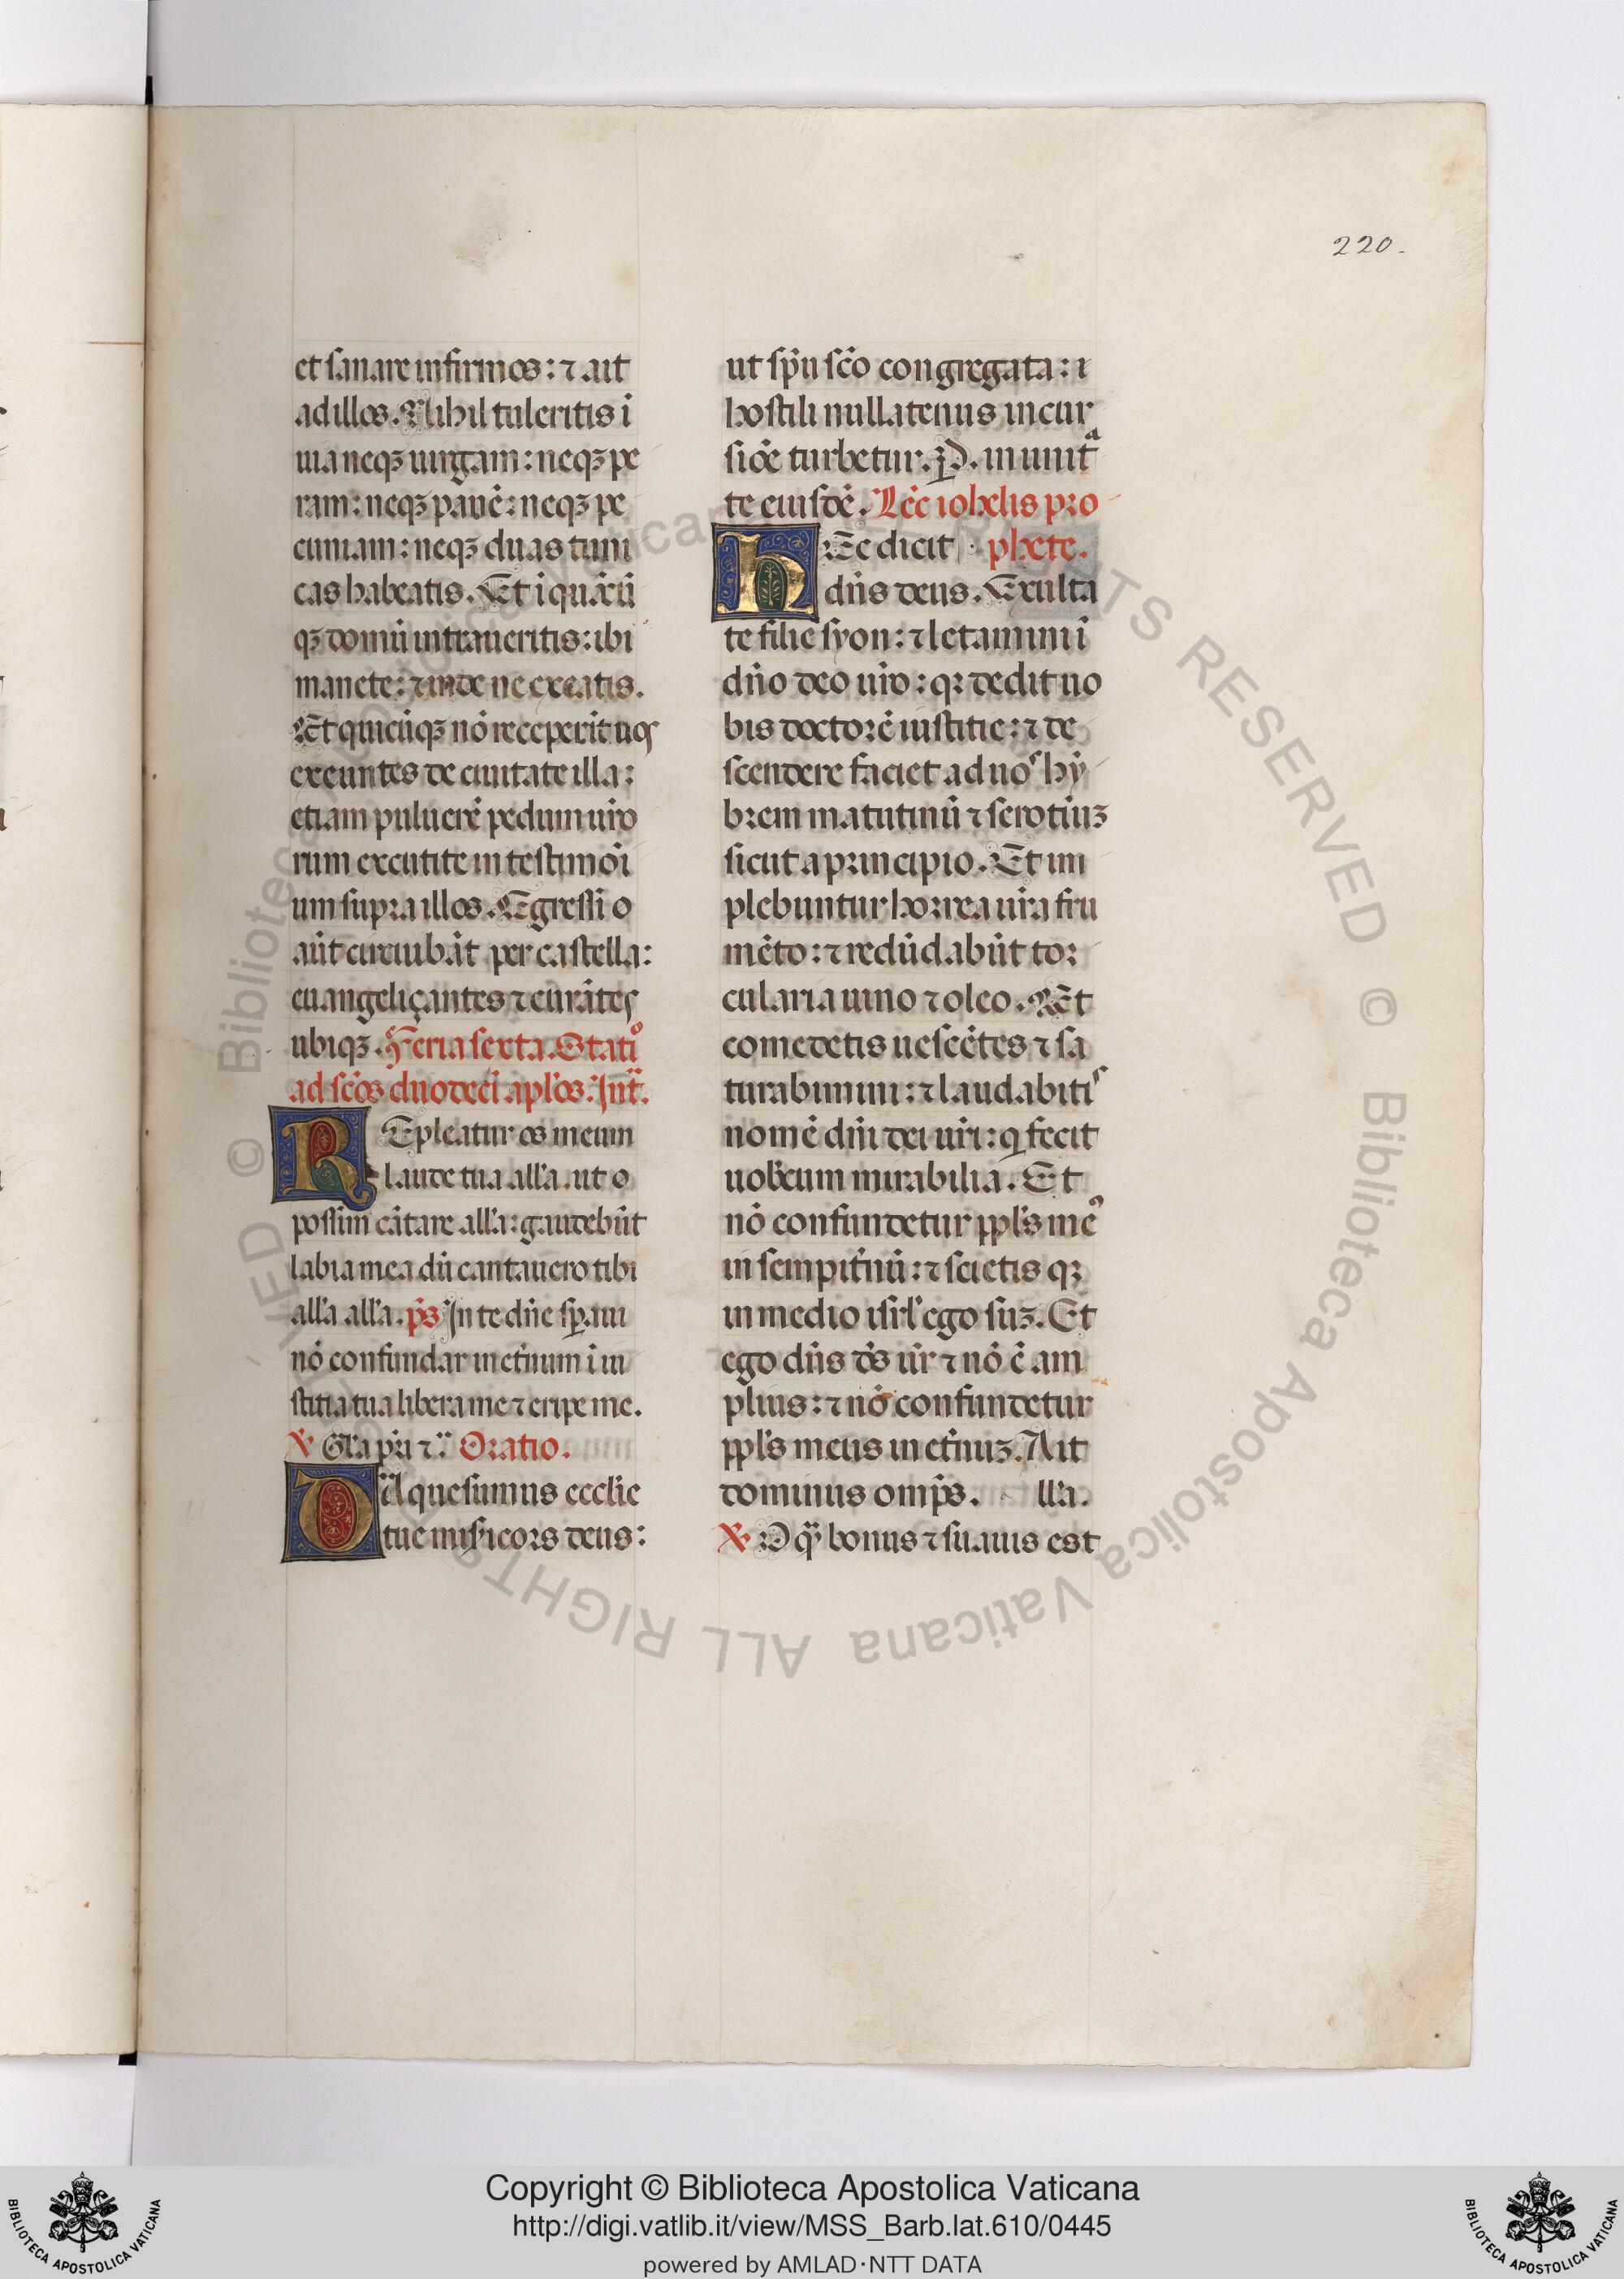 220.
et sanare infirmos: ⁊ ait
ad illos. Nihil tuleritis ī
uia neqȝ uirgam: neqȝ pe
ram: neqȝ panē: neqȝ pe
cuniam: neqȝ duas tuni
cas habeatis. Et ī quācū
qȝ domū intraueritis: ibi
manete: ⁊ inde ne exeatis.
Et quicūqȝ nō receperit uos
exeuntes de ciuitate illa:
etiam puluerē pedum uro
rum excutite in testimoī
um supra illos. Egressi o
aūt circuibāt per castella:
euangeliçantes ⁊ curātes
ubiqȝ. Feria sexta. Statio
ad scōs duodecī aplōs. Int.
REpleatur os meum
laude tua alla. ut o
possim cātare alla: gaudebūt
labia mea dū cantauero tibi
alla alla. ps In te dn̄e sꝑaui
nō confundar in et̄num ī iu
stitia tua libera me ⁊ eripe me.
℣ Gl̄a pr̄i ⁊ Oratio.
DA quesumus eccl̄ie
tue misīcors deus:
ut spū scō congregata: ī
hostili nullatenus incur
siōe turbetur. P. in unita
te eiusdē. Lēc iohelis pro
HEc dicit phete.
dn̄s deus. Exulta
te filie syon: ⁊ letamini ī
dn̄o deo uro: qꝛ dedit uo
bis doctorē iustitie: ⁊ de
scendere faciet ad uos hy
brem matutinū ⁊ serotinuȝ
sicut a principio. Et im
plebuntur horrea uīa fru
mēto: ⁊ redūdabūt tor
cularia uino ⁊ oleo. Et
comedetis uescētes ⁊ sa
turabimini: ⁊ laudabitis
nomē dn̄i dei uri: q fecit
uobcum mirabilia. Et
nō confundetur ppls meꝰ
in sempit̄nū: ⁊ scietis qꝛ
in medio isrl ego suȝ. Et
ego dn̄s ds̄ ur̄ ⁊ nō ē am
plius: ⁊ nō confundetur
ppls meus in et̄nuȝ. Ait
dominus omps. lla.
℣ O q̄ bonus ⁊ suauis est
© Biblioteca Apostolica Vaticana ALL RIGHTS RESERVED © Biblioteca Apostolica Vaticana ALL RIGHTS RESERVED
Copyright © Biblioteca Apostolica Vaticana
http://digi.vatlib.it/view/MSS_Barb.lat.610/0445
powered by AMLAD·NTT DATA
BIBLIOTECA APOSTOLICA VATICANA
BIBLIOTECA APOSTOLICA VATICANA